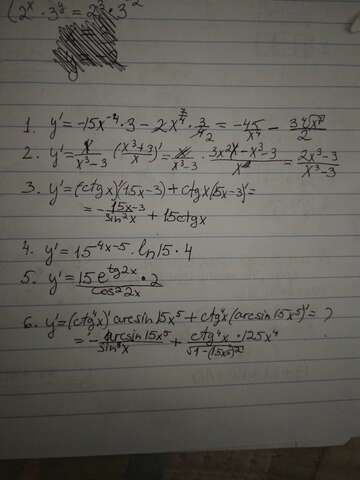 (2ˣ · 3^y = 2³ · 3⁻²
1. y' = -15x⁻⁴ · 3 - 2x^(7/4) · 3/2 = -45/x⁴ -
2. y' = x/(x³-3) · ((x³+3)/x)' = x/(x³-3) · (3x²x - x³ - 3)/x² = (2x³-3)/(x³-3)
3. y' = (ctgx)'(15x-3) + ctgx(15x-3)' =
= - (15x-3)/sin²x + 15ctgx
4. y' = 15^(4x-5) · ln15 · 4
5. y' = 15 e^(tg2x)/cos²2x · 2
6. y' = (ctg⁴x)' arcsin15x⁵ + ctg⁴x (arcsin15x⁵)' = ?
= - arcsin15x⁵/sin⁴x + ctg⁴x · 125x⁴/√1-(15x⁵)²